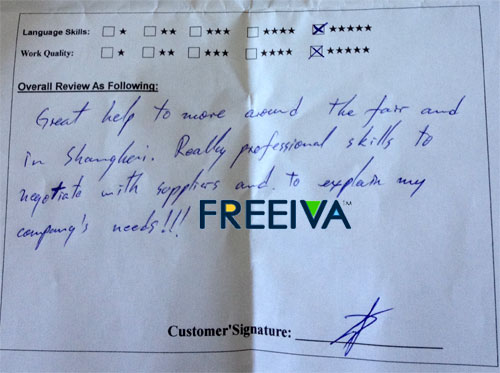 Language Skills: ☐ ★ ☐ ★★ ☐ ★★★ ☐ ★★★★ ☒ ★★★★★
Work Quality: ☐ ★ ☐ ★★ ☐ ★★★ ☐ ★★★★ ☒ ★★★★★
Overall Review As Following:
Great help to more around the fair and
in Shanghai. Really professional skills to
negotiate with suppliers and to explain my
company's needs!!!
FREEIVA™
Customer'Signature: